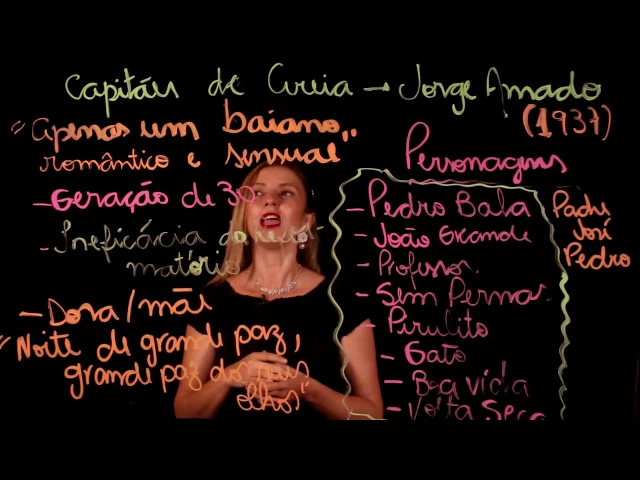 Capitães de Areia → Jorge Amado
(1937)
"Apenas um baiano,
romântico e sensual"
- Geração de 30
- Ineficárcia do refor-
matório
- Dora/mãe
"Noite de grande paz,
grande paz dos seus
olhos"
Personagens
- Pedro Bala
- João Grande
- Professor
- Sem Pernas
- Pirulito
- Gato
- Boa vida
- Volta Seca
Padre
José
Pedro